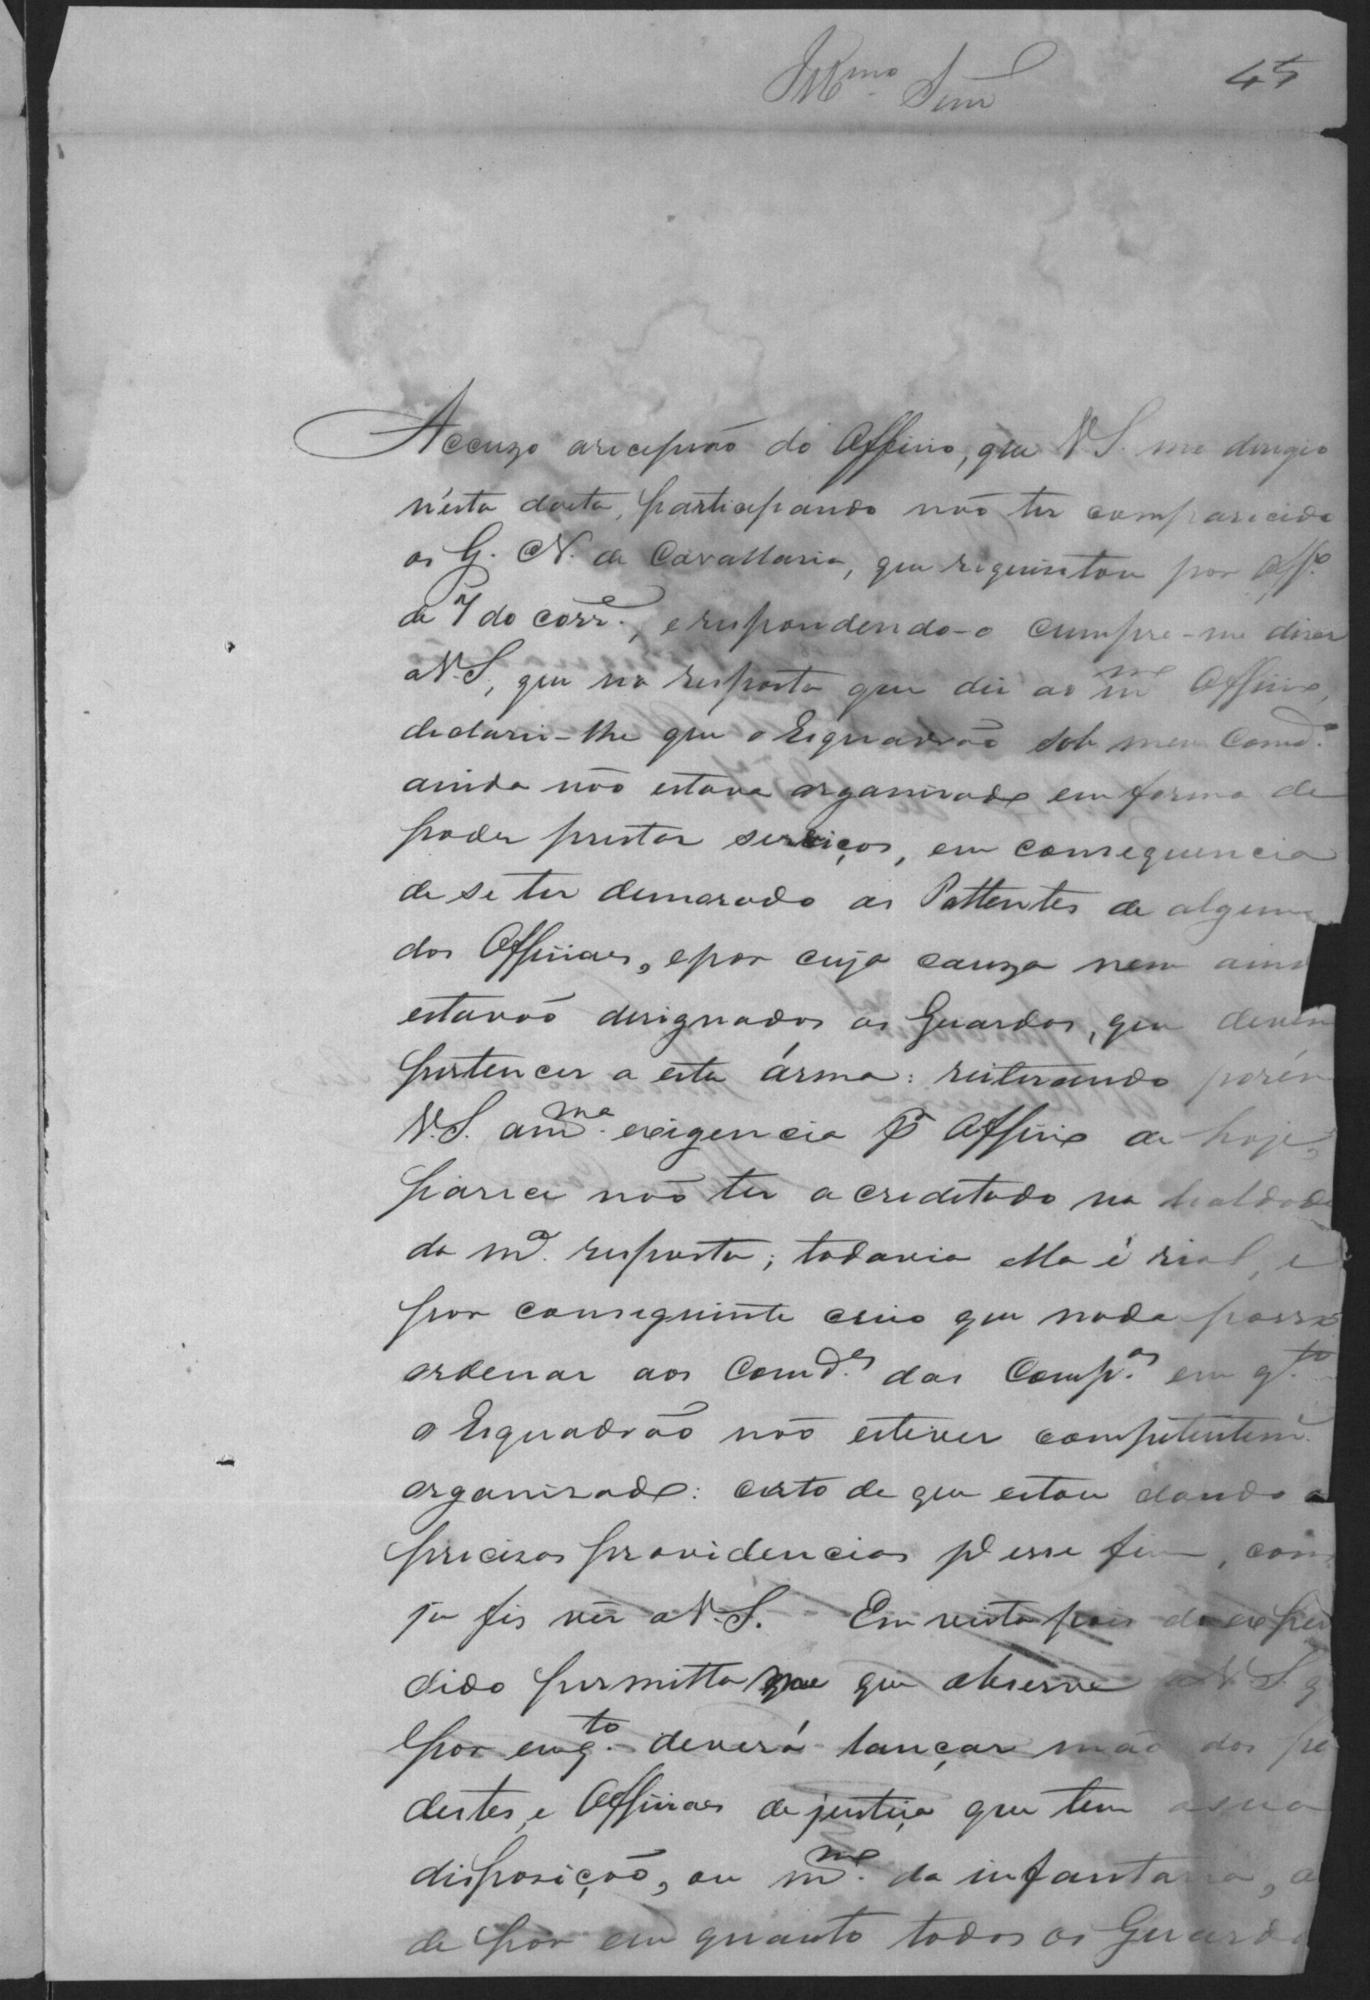 Illmo Senr
45
Accuzo arecepsão do Officio, que V.S. me dirigio
n'esta dacta, participando não ter comparecido
os G. N. de Cavallaria, que requisitou por Offo
de 7 do corre., e respondendo-o cumpre-me diser
a V.S., que na resposta que dei ao mme Officio,
declarei-lhe que o Esquadrão sob meu Comdo.
ainda não estava organisado em forma de
poder prestar serviços, em consequencia
de se ter demorado as Pattentes de algum
dos Officiaes, epor cuja cauza nem aind
estavão designados os Guardas, que devem
pertencer a esta árma: reiterando porém
V.S. amma. exigencia pr Officio de hoje,
parece não ter acreditado na lealdade
da ma. resposta; todavia ella é rial, e
por conseguinte creio que nada posso
ordenar aos Comdes. das Compas. em qto
o Esquadrão não estiver competentem.
organisado: certo de que estou dando a
precizas providencias pa esse fim, com
ja fis ver a V.S. Em vista pois do expen
dido permitta que observe a V.S. q
por emqto. deverá lançar mão dos pe
destes, e Officiaes de justiça que tem asua
disposição, ou mme. da infantaria, a
de por em quanto todos os Guarda